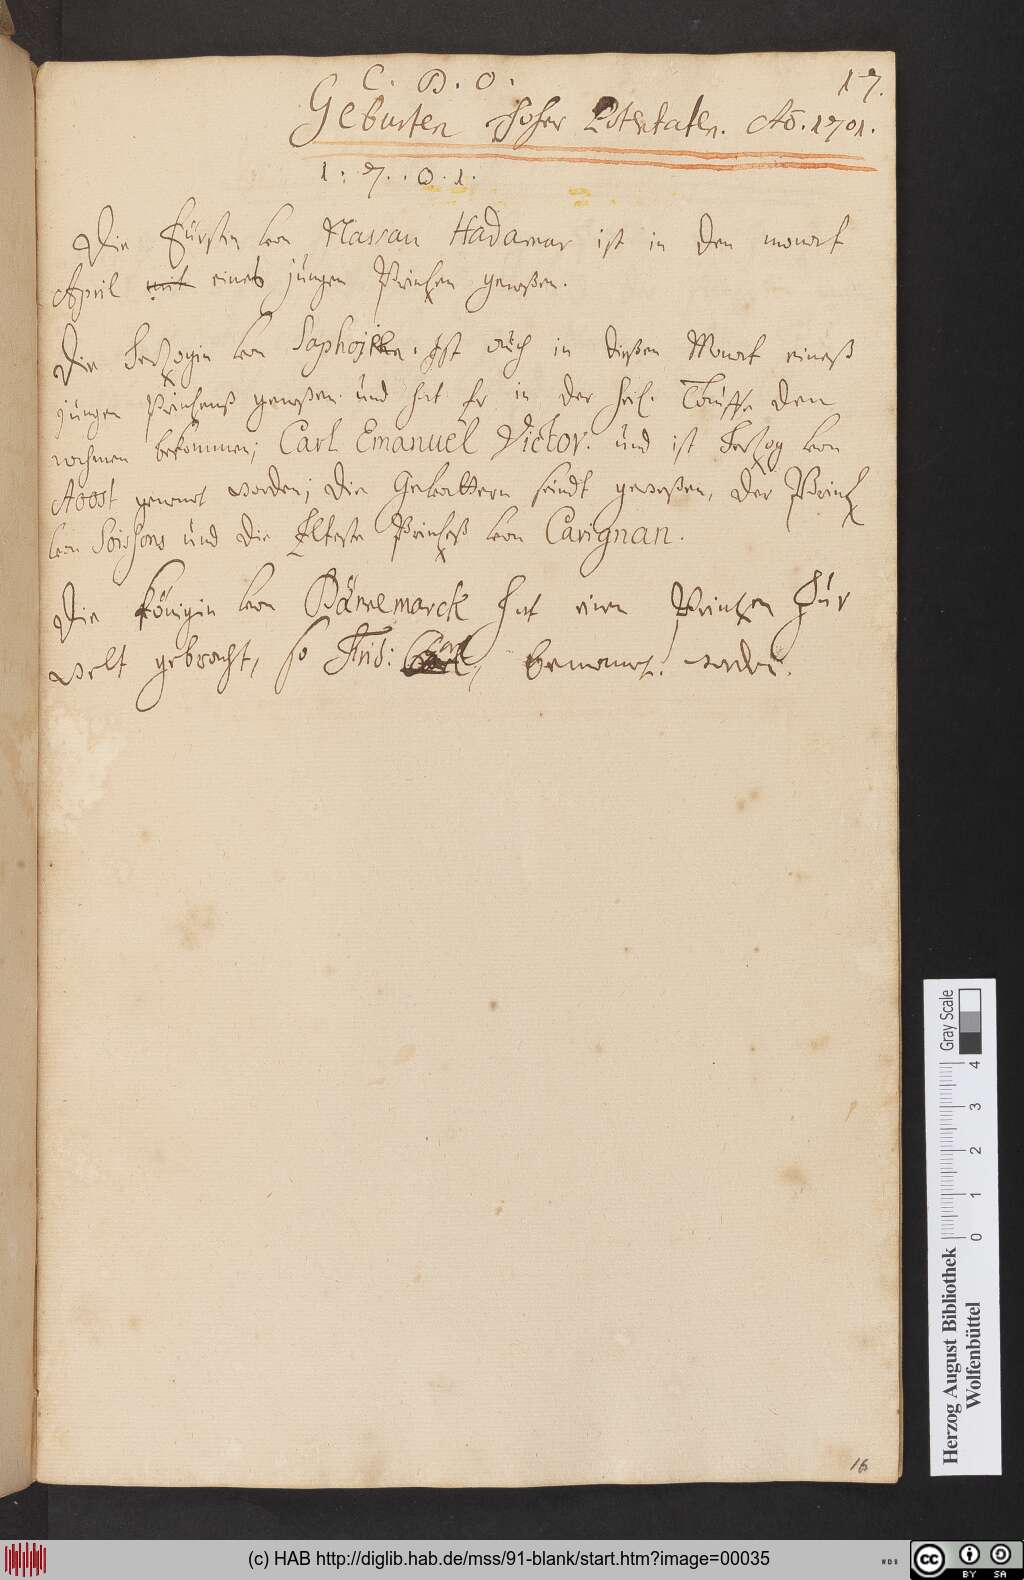 C. D. O.
17.
Geburten Hoher Potentaten. Aō. 1701.
1. 7. 0. 1.
Die Fürstin von Nassau Hadamar ist in den monat
April mit eines jungen Printzen genesen.
Die Hertzogin von Saphojen. Ist auch in dießen Monat eineß
jungen Printzens genesen und hat Er in der heil. Tauffe den
nahmen bekommen; Carl Emanuel Victor. und ist Hertzog von
Aoost genant worden; die Gevattern seindt geweßen, der Printz
von Soissons und die Elteste Printzeß von Carignan.
Die Königin von Dännemarck hat einen Printzen Zur
welt gebracht, so Frid: Carl, benamet worden.
16
Gray Scale
0 1 2 3 4
Herzog August Bibliothek
Wolfenbüttel
(c) HAB http://diglib.hab.de/mss/91-blank/start.htm?image=00035
WDB
cc BY SA